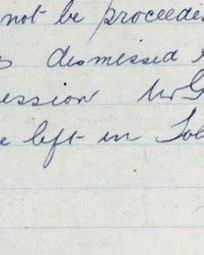 not be proceedi
dismissed
ession McG
left in Sol